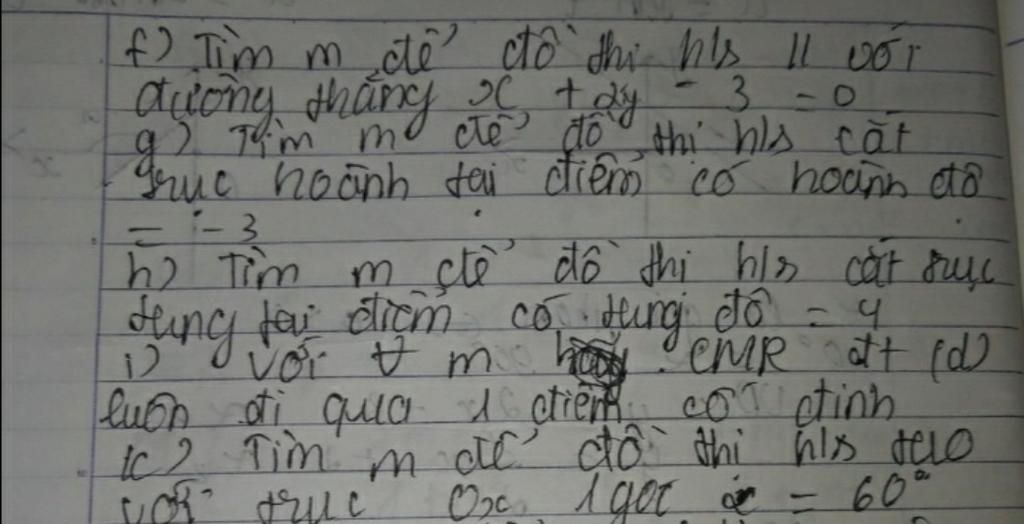 f) Tìm m để đồ thị h/s // với
đường thẳng x + 2y - 3 = 0
g) Tìm m để đồ thị h/s cắt
trục hoành tại điểm có hoành độ
= -3
h) Tìm m để đồ thị h/s cắt trục
tung tại điểm có tung độ = 4
i) Với ∀ m CMR đt (d)
luôn đi qua 1 điểm cố định
k) Tìm m để đồ thị h/s tạo
với trục Ox 1 góc = 60°